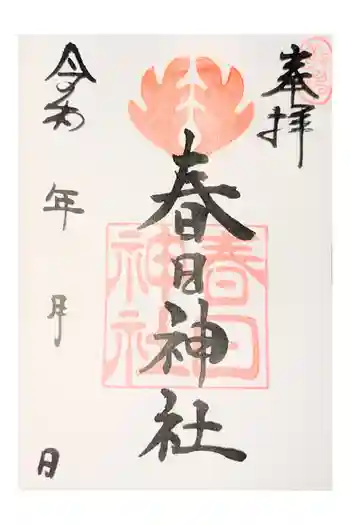 奉拝
春日神社
春日神社
令和 年 月 日